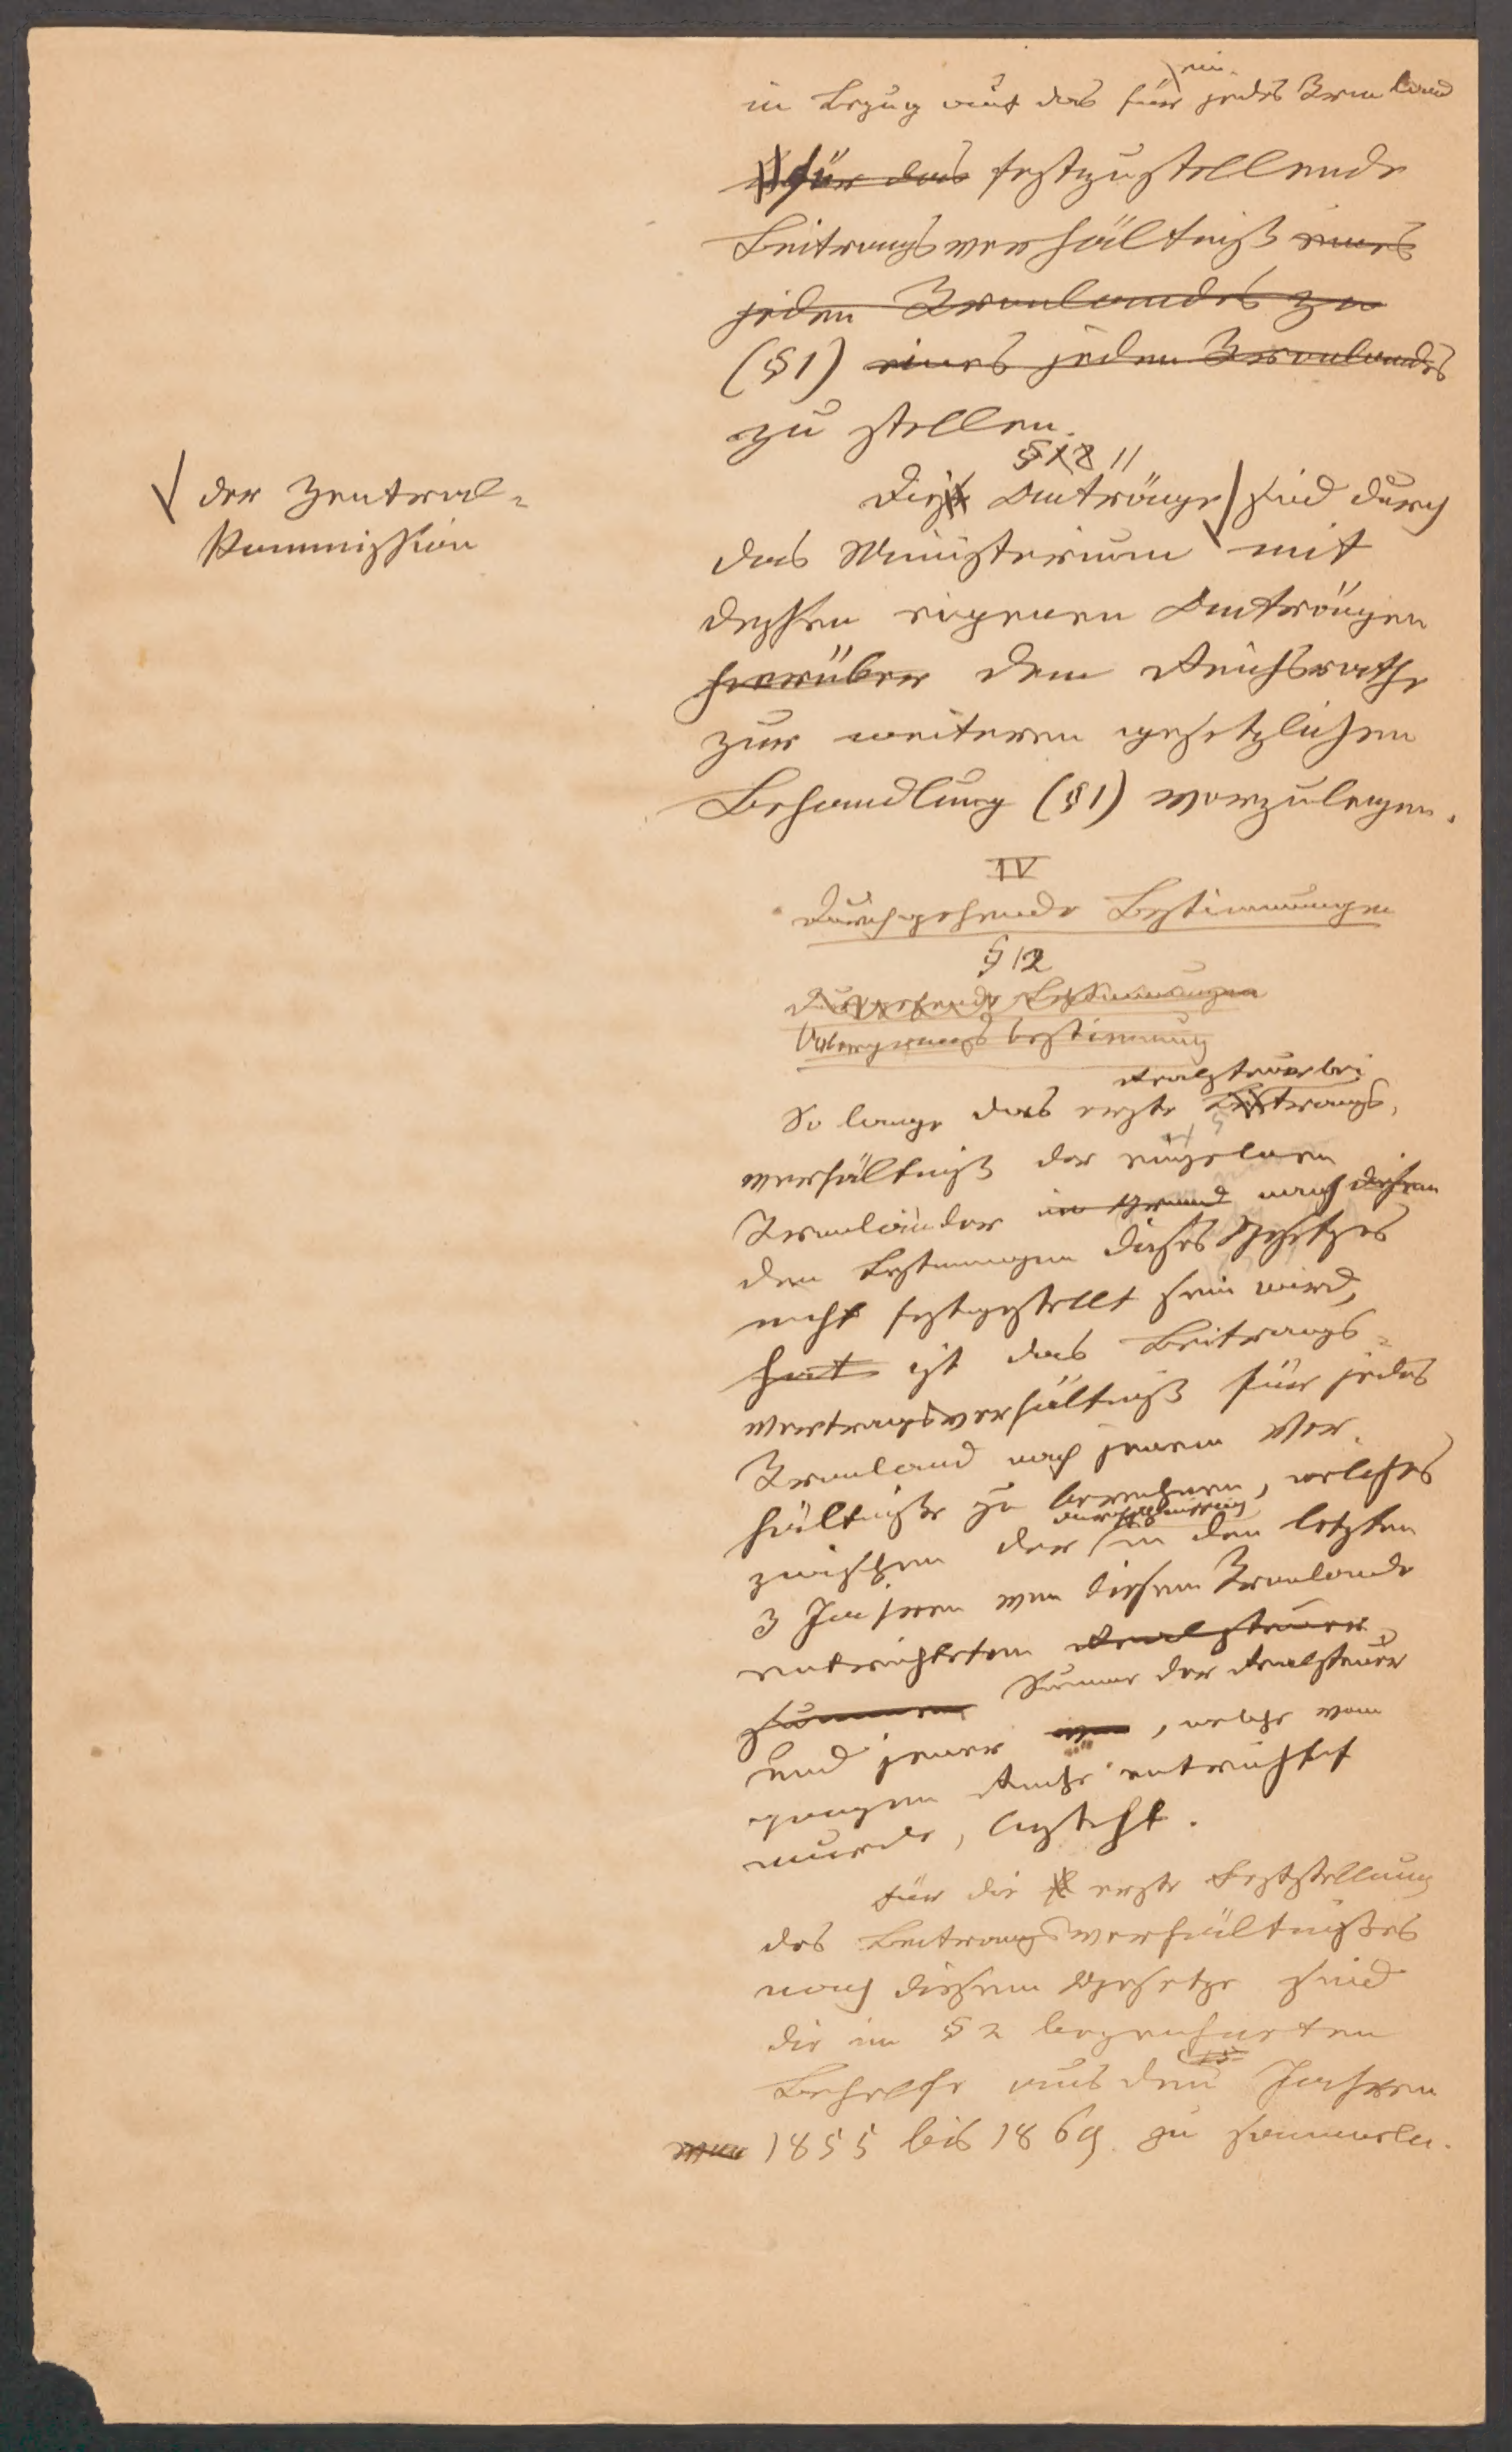 ein
in Bezug auf das für jedes Kronland
für das festzustellende
Beitragsverhältniß eines
jeden Kronlandes zu
(§1) eines jeden Kronlandes
zu stellen.
§ 12 11
Die Anträge sind durch
der Zentral-
Kommission
das Ministerium mit
dessen eigenen Anträgen
hierüber dem Reichsrathe
zur weiteren gesetzlichen
Behandlung (§1) vorzulegen.
IV
Durchgehende Bestimmungen
§ 12
Durchgehende Bestimmungen
Übergangsbestimmung
Realsteuerbei
So lange das erste Beitrags-
verhältniß der einzelnen
Kronländer im Grund nach diesem
den Bestimmungen dieses Gesetzes
nicht festgestellt sein wird,
hat ist das Beitrags-
vertragsverhältniß für jedes
Kronland nach jenem Ver-
hältniße zu berechnen, welches
durchschnittlich
zwischen der in den letzten
3 Jahren von diesem Kronlande
entrichteten Realsteuer
Summen Summe der Realsteuer
und jener von, welche vom
ganzen Reiche entrichtet
wurde, besteht.
Für die erste Feststellung
des Beitragsverhältnißes
nach diesem Gesetze sind
die im § 2 bezeichneten
15
Behelfe aus den Jahren
von 1855 bis 1869 zu sammeln.